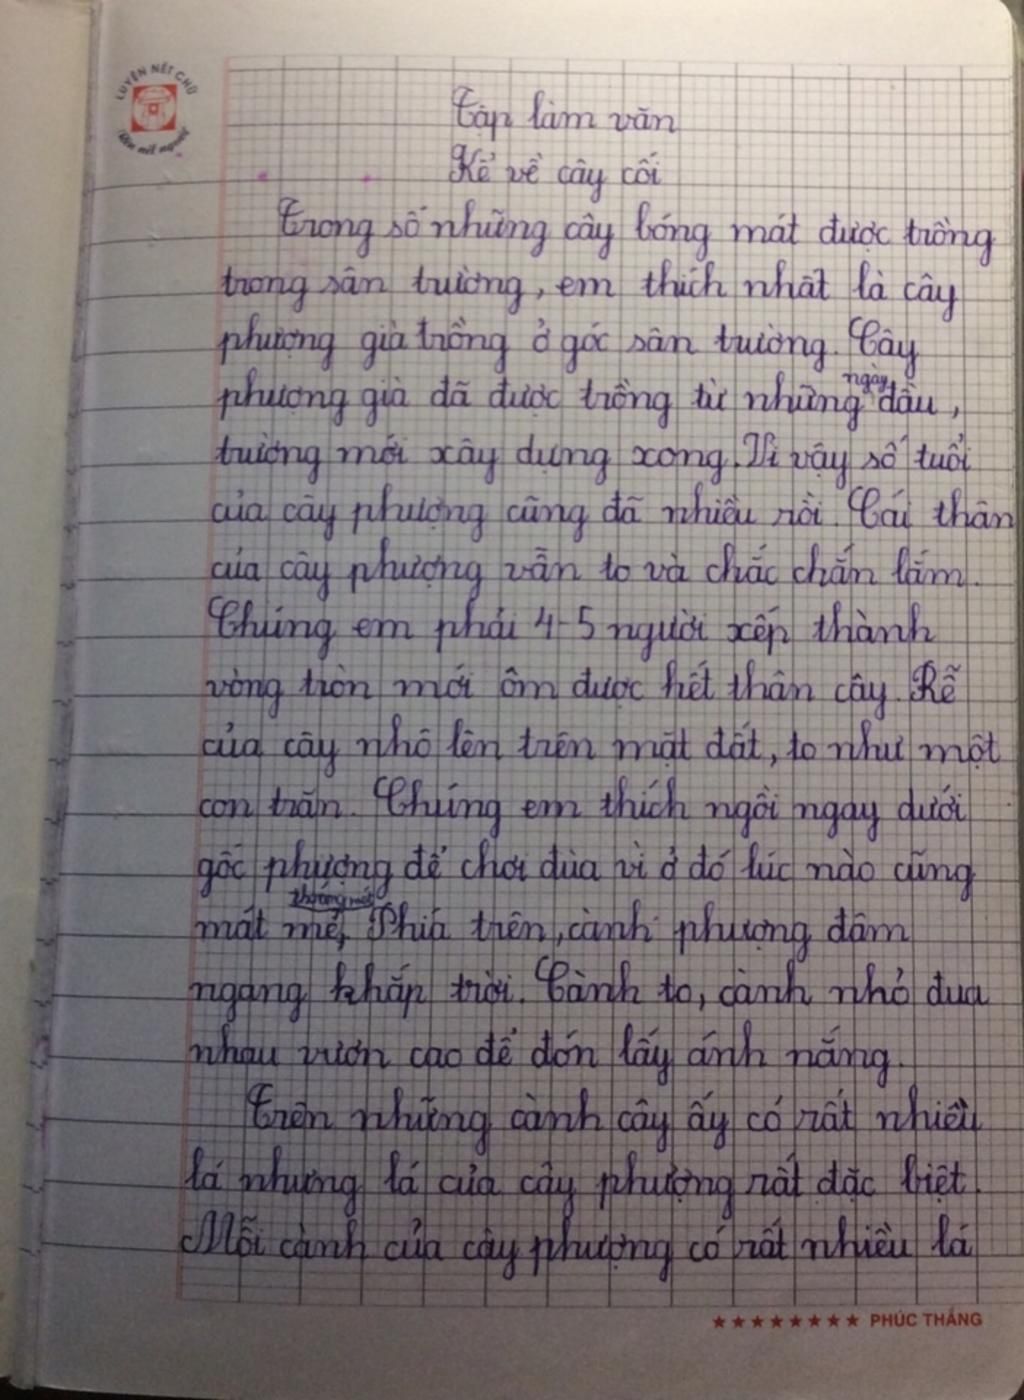 LUYỆN NÉT CHỮ
Rèn nết người
Tập làm văn
Kể về cây cối
Trong số những cây bóng mát được trồng
trong sân trường, em thích nhất là cây
phượng già trồng ở góc sân trường. Cây
ngày
phượng già đã được trồng từ những đầu,
trường mới xây dựng xong. Vì vậy số tuổi
của cây phượng cũng đã nhiều rồi. Cái thân
của cây phượng vẫn to và chắc chắn lắm.
Chúng em phải 4-5 người xếp thành
vòng tròn mới ôm được hết thân cây. Rễ
của cây nhô lên trên mặt đất, to như một
con trăn. Chúng em thích ngồi ngay dưới
gốc phượng để chơi đùa vì ở đó lúc nào cũng
thoáng mát
mát mẻ, Phía trên, cành phượng đâm
ngang khắp trời. Cành to, cành nhỏ đua
nhau vươn cao để đón lấy ánh nắng.
Trên những cành cây ấy có rất nhiều
lá nhưng lá của cây phượng rất đặc biệt.
Mỗi cành của cây phượng có rất nhiều lá
★★★★★★★★ PHÚC THẮNG